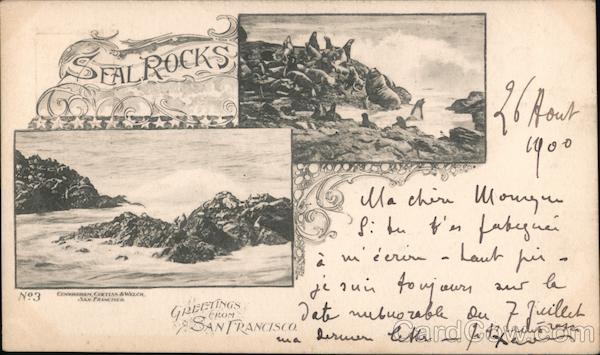 SEAL ROCKS
26 Août
1900
Ma chère
Si tu t'es fatiguée
à m'écrire - tant pis -
je suis toujours sur la
date mémorable du 7 Juillet
ma dernière
No 3
CUNNINGHAM, CURTISS & WELCH,
SAN FRANCISCO.
GREETINGS
FROM
SAN FRANCISCO.
CardCow.com